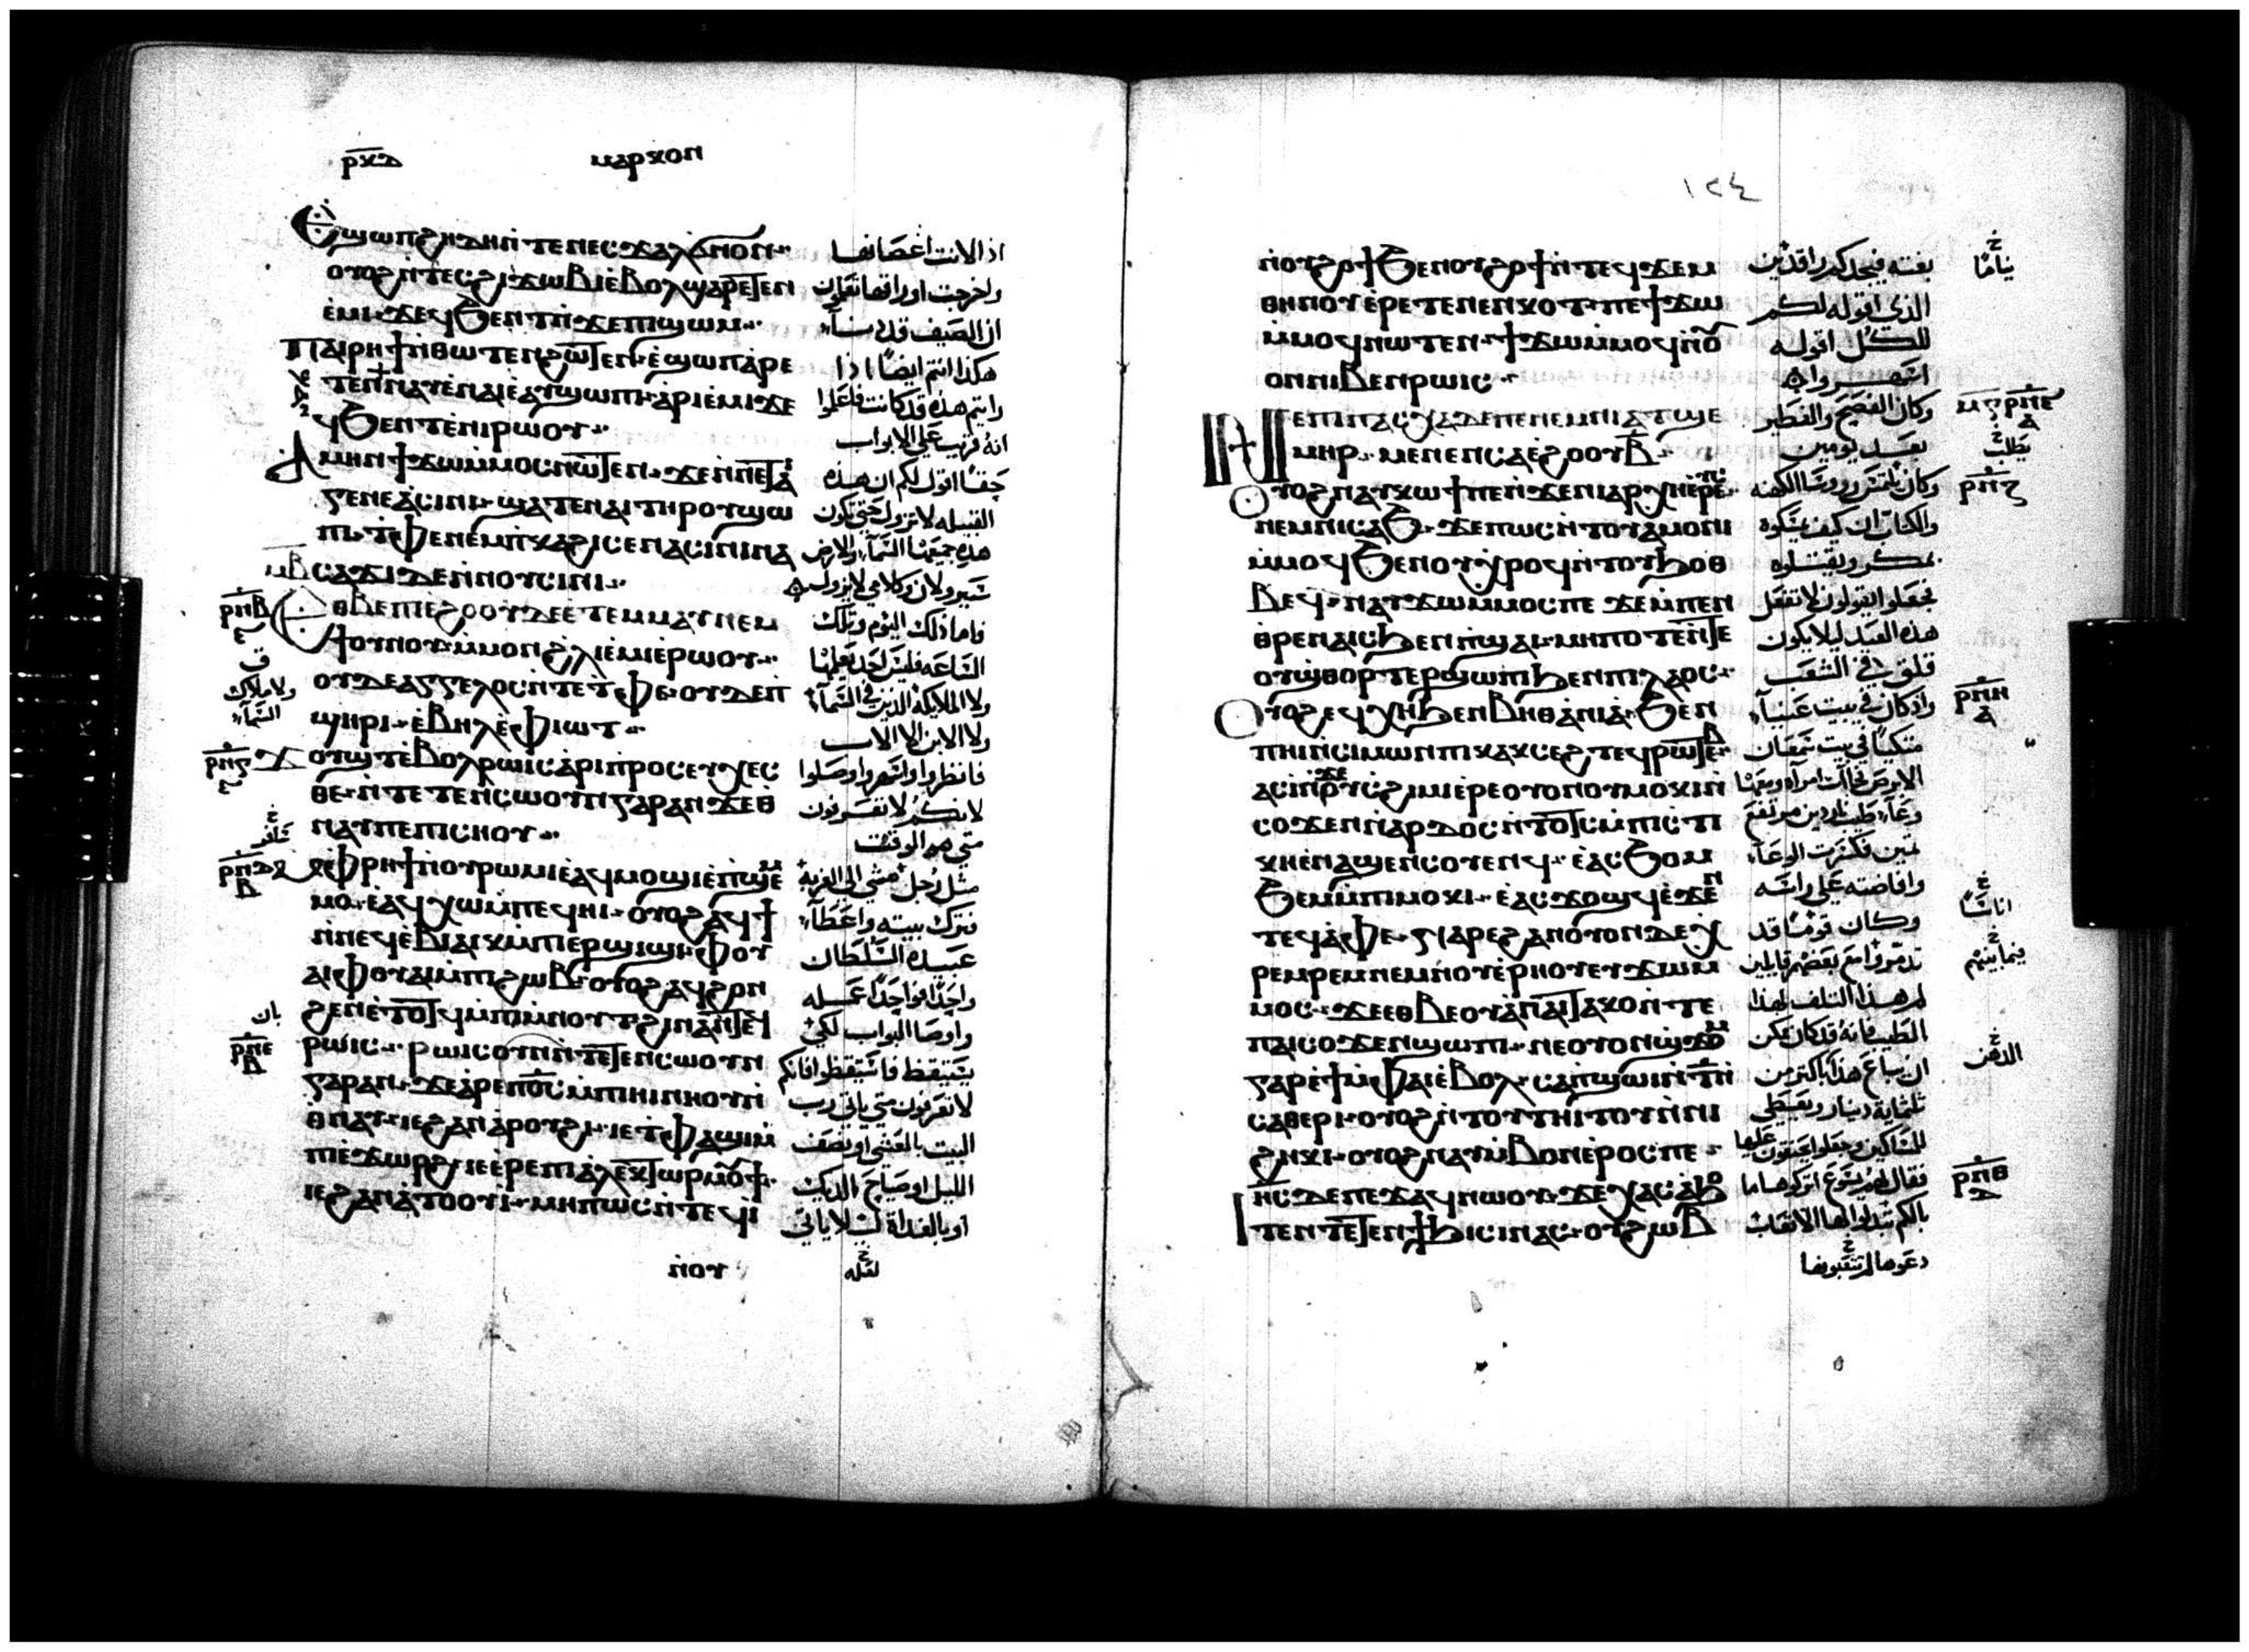 ⲣⲕⲇ ⲙⲁⲣⲕⲟⲛ
ⲉϣⲱⲡ ϩⲏⲇⲏ ⲛ̀ⲧⲉ ⲛⲉⲥϫⲁⲗ ϭⲛⲟⲛ
اذا لانت اغصانها
ⲟⲩⲟϩ ⲛ̀ⲧⲉⲥϩⲓϫⲱⲃⲓ ⲉ̀ⲃⲟⲗ ϣⲁⲣⲉⲧⲉⲛ
واخرجت اوراقها تعلمون
ⲉ̀ⲙⲓ ϫⲉ ϥϧⲉⲛⲧ ⲛ̀ϫⲉ ⲡⲓϣⲱⲙ
ان الصيف قد دنا
ⲡⲁⲓⲣⲏϯ ⲛ̀ⲑⲱⲧⲉⲛ ϩⲱⲧⲉⲛ ⲉ̀ϣⲱⲡ ⲁⲣⲉ
هكذا انتم ايضا اذا
ⲧⲉⲛⲛⲁⲩ ⲉ̀ⲛⲁⲓ ⲉⲁⲩϣⲱⲡⲓ ⲁⲣⲓⲉ̀ⲙⲓ ϫⲉ
رايتم هذه قد كانت فاعلموا
ϥϧⲉⲛⲧ ⲉ̀ⲛⲓⲣⲱⲟⲩ
انه قريب على الابواب
ⲁⲙⲏⲛ ϯϫⲱ ⲙ̀ⲙⲟⲥ ⲛⲱⲧⲉⲛ ϫⲉ ⲛ̀ⲛⲉⲧⲁⲓ
حقا اقول لكم ان هذه
ⲅⲉⲛⲉⲁ ⲥⲓⲛⲓ ϣⲁⲧⲉ ⲛⲁⲓ ⲧⲏⲣⲟⲩ ϣⲱ
القبيله لا تزول حتى تكون
ⲡⲓ ⲧ̀ⲫⲉ ⲛⲉⲙ ⲡ̀ⲕⲁϩⲓ ⲥⲉⲛⲁⲥⲓⲛⲓ ⲛⲁ
هذه جميعها السماء والارض
ⲙⲃ ⲥⲁϫⲓ ⲇⲉ ⲛ̀ⲛⲟⲩⲥⲓⲛⲓ
تزولان وكلامي لا يزول
ⲣⲛⲃ ⲉⲑⲃⲉ ⲡⲓⲉ̀ϩⲟⲟⲩ ⲇⲉ ⲉ̀ⲧⲉⲙⲙⲁⲩ ⲛⲉⲙ
فاما ذلك اليوم وتلك
ϯⲟⲩⲛⲟⲩ ⲙ̀ⲙⲟⲛ ϩⲗⲓ ⲉ̀ⲙⲓ ⲉ̀ⲣⲱⲟⲩ
الساعه فليس احد يعلمها
ⲟⲩⲇⲉ ⲁⲅⲅⲉⲗⲟⲥ ⲛ̀ⲧⲉ ⲧ̀ⲫⲉ ⲟⲩⲇⲉ ⲡ
ولا الملايكه الذين في السماء
ق ولا ملاك السماء
ϣⲏⲣⲓ ⲉ̀ⲃⲏⲗ ⲉ̀ⲫⲓⲱⲧ
ولا الابن الا الاب
ⲣⲛⲅ ϫⲟⲩϣⲧ ⲉ̀ⲃⲟⲗ ⲣⲱⲓⲥ ⲁⲣⲓⲡⲣⲟⲥⲉⲩⲭⲉⲥ
فانظروا واسهروا وصلوا
ⲑⲉ ⲛ̀ⲧⲉⲧⲉⲛⲥⲱⲟⲩⲛ ⲅⲁⲣ ⲁⲛ ϫⲉ ⲑ
لانكم لا تعرفون
ⲛⲁⲩ ⲡⲉ ⲡⲓⲥⲏⲟⲩ
متى هو الوقت
ⲣⲛⲇ ⲃ ⲙ̀ⲫⲣⲏϯ ⲛⲟⲩⲣⲱⲙⲓ ⲉⲁϥⲙⲟϣⲓ ⲉ̀ⲡϣⲉⲙ
مثل رجل مشى الى الغربة
ⲙⲟ ⲉⲁϥⲭⲱ ⲙ̀ⲡⲉϥⲏⲓ ⲟⲩⲟϩ ⲁϥϯ
فترك بيته واعطا
ⲛ̀ⲛⲉϥⲉ̀ⲃⲓⲁⲓⲕ ⲙ̀ⲡⲉⲣϣⲓϣⲓ ⲫⲟⲩ
عبيده السلطان
ⲁⲓ ⲫⲟⲩⲁⲓ ⲙ̀ⲡⲓϩⲱⲃ ⲟⲩⲟϩ ⲁϥϩⲟⲛ
واحدا فواحدا عمله
ϩⲉⲛ ⲉ̀ⲧⲟⲧϥ ⲙ̀ⲡⲓⲙⲛⲟⲩⲧ ϩⲓⲛⲁ ⲛ̀ⲧⲉϥ
واوصا البواب لكي
بان
ⲣⲛⲉ ⲃ ⲣⲱⲓⲥ ⲣⲱⲓⲥ ⲟⲩⲛ ⲛ̀ⲧⲉⲧⲉⲛⲥⲱⲟⲩⲛ
يستيقظ فاستيقظوا فانكم
ⲅⲁⲣ ⲁⲛ ϫⲉ ⲁⲣⲉ ⲡϭⲟⲓⲥ ⲙ̀ⲡⲓⲏⲓ ⲛⲏⲟⲩ ⲛ̀
لا تعرفون متى ياتي رب
ⲑⲛⲁⲩ ⲓⲉ ϩⲁⲛⲁⲣⲟⲩϩⲓ ⲓⲉ ⲧ̀ⲫⲁϣⲓ ⲙ̀
البيت بالعشي او نصف
ⲡⲓⲉ̀ϫⲱⲣϩ ⲓⲉ ⲉ̀ⲣⲉ ⲡⲓⲁⲗⲉⲕⲧⲱⲣ ⲙⲟⲩϯ
الليل او صياح الديك
ⲓⲉ ϩⲁⲛⲁⲧⲟⲟⲩⲓ ⲙⲏⲡⲱⲥ ⲛ̀ⲧⲉϥⲓ
او بالغداة لئلا ياتي
ⲛⲟⲩ
١٢٤
ⲛⲟⲩϩⲟϯ ϧⲉⲛ ⲟⲩϩⲟϯ ⲛ̀ⲧⲉϥϫⲉⲙ
بغته فيجدكم راقدين
نياما
ⲑⲏⲛⲟⲩ ⲉ̀ⲣⲉⲧⲉⲛⲉⲛⲕⲟⲧ ⲡⲉϯϫⲱ
الذي اقوله لكم
ⲙ̀ⲙⲟϥ ⲛⲱⲧⲉⲛ ϯϫⲱ ⲙ̀ⲙⲟϥ ⲛⲟ
للكل اقوله
ⲟⲛ ⲛⲓⲃⲉⲛ ⲣⲱⲓⲥ
اسهروا
ⲛⲉ ⲡⲓⲡⲁⲥⲭⲁ ⲇⲉ ⲡⲉ ⲛⲉⲙ ⲛⲓⲁⲧϣⲉ
وكان الفصح والفطير
ⲙⲅ ⲣⲛⲋ ⲁ
ⲙⲏⲣ ⲙⲉⲛⲉⲛⲥⲁ ⲉ̀ϩⲟⲟⲩ ⲃ̅
بعد يومين
يطلب
ⲟⲩⲟϩ ⲛⲁⲩⲕⲱϯ ⲡⲉ ⲛ̀ϫⲉ ⲛⲓⲁⲣⲭⲏⲉ̀ⲣⲉⲩⲥ
وكان يلتمس روسا الكهنه
ⲣⲛⲍ
ⲛⲉⲙ ⲛⲓⲥⲁϧ ϫⲉ ⲡⲱⲥ ⲛ̀ⲧⲟⲩⲁⲙⲟⲛⲓ
والكتاب ان كيف يمسكوه
ⲙ̀ⲙⲟϥ ϧⲉⲛ ⲟⲩⲭⲣⲟϥ ⲛ̀ⲧⲟⲩϧⲟⲑ
بمكر ويقتلوه
ⲃⲉϥ ⲛⲁⲩϫⲱ ⲙ̀ⲙⲟⲥ ⲡⲉ ϫⲉ ⲙ̀ⲡⲉⲛ
فجعلوا يقولون لا نفعل
ⲑⲣⲉⲛⲁⲓⲥ ϧⲉⲛ ⲡ̀ϣⲁⲓ ⲙⲏⲡⲟⲧⲉ ⲛ̀ⲧⲉ
هذه العيد ليلا يكون
ⲟⲩϣⲑⲟⲣⲧⲉⲣ ϣⲱⲡⲓ ϧⲉⲛ ⲡⲓⲗⲁⲟⲥ
قلق في الشعب
ⲟⲩⲟϩ ⲉϥⲭⲏ ϧⲉⲛ ⲃⲏⲑⲁⲛⲓⲁ ϧⲉⲛ
واذ كان في بيت عنيا
ⲣⲛⲏ ⲁ
ⲡⲏⲓ ⲛ̀ⲥⲓⲙⲱⲛ ⲡⲓⲕⲁⲕⲥⲉϩⲧ ⲉϥⲣⲱⲧⲉⲃ
متكيا في بيت سمعان
ⲁⲥⲓ̀ ϩⲁⲣⲟϥ ⲛ̀ϫⲉ ⲟⲩⲥϩⲓⲙⲓ ⲉ̀ⲣⲉ ⲟⲩⲟⲛ ⲟⲩⲙⲟⲕⲓ ⲛ̀
الابرص فجات امراه ومعها
ⲥⲟϫⲉⲛ ⲛ̀ⲛⲁⲣⲇⲟⲥ ⲛ̀ⲧⲟⲧⲥ ⲙ̀ⲡⲓⲥⲧⲓ
وعاء طيب ناردين مرتفع
ⲕⲏ ⲉ̀ⲛⲁϣⲉⲛⲥⲟⲩⲉⲛϥ ⲉ̀ⲁⲥϧⲟⲙ
ثمين فكسرت الوعاء
ϧⲉⲙ ⲙ̀ⲡⲓⲙⲟⲕⲓ ⲉⲁⲥϫⲟϣϥ ⲉ̀ϫⲉⲛ
وافاضته على راسه
ⲧⲉϥⲁⲫⲉ ⲛⲁⲣⲉ ϩⲁⲛⲟⲩⲟⲛ ⲇⲉ ⲭ
وكان قوما قد
اناسا
ⲣⲉⲙⲣⲉⲙ ⲛⲉⲙ ⲛⲟⲩⲉ̀ⲣⲏⲟⲩ ⲉⲩϫⲱ ⲙ̀
تذمروا مع بعضهم قايلين
فيما بينهم
ⲙⲟⲥ ϫⲉ ⲉⲑⲃⲉ ⲟⲩ ⲁ ⲡⲁⲓⲧⲁⲕⲟ ⲛ̀ⲧⲉ
لم هذا التلف لهذا
ⲡⲁⲓⲥⲟϫⲉⲛ ϣⲱⲡⲓ ⲛⲉ ⲟⲩⲟⲛ ϣϫⲟⲙ
الطيب فانه قد كان يمكن
الدهن
ⲅⲁⲣ ⲉ̀ϯ ⲙ̀ⲫⲁⲓ ⲉ̀ⲃⲟⲗ ⲥⲁⲡϣⲱⲓ ⲛ̀ⲧ ⲛ̀
ان يباع هذا باكثر من
ⲥⲁⲑⲉⲣⲓ ⲟⲩⲟϩ ⲛ̀ⲧⲟⲩⲧⲏⲓⲧⲟⲩ ⲛ̀ⲛⲓ
ثلثماية دينار ويعطى
ϩⲏⲕⲓ ⲟⲩⲟϩ ⲛⲁⲩⲙ̀ⲃⲟⲛ ⲉ̀ⲣⲟⲥ ⲡⲉ
للمساكين وجعلوا يحنقون عليها
ⲓⲏⲥ ⲇⲉ ⲡⲉϫⲁϥ ⲛⲱⲟⲩ ϫⲉ ⲭⲁⲥ ⲁϧⲟ
فقال لهم يسوع اتركوها ما
ⲣⲛⲑ ⲇ
ⲧⲉⲛ ⲧⲉⲧⲉⲛϯϧⲓⲥⲓ ⲛⲁⲥ ⲟⲩϩⲱⲃ
بالكم تبدلوا لها الاتعاب
دعوها لم تتعبونها